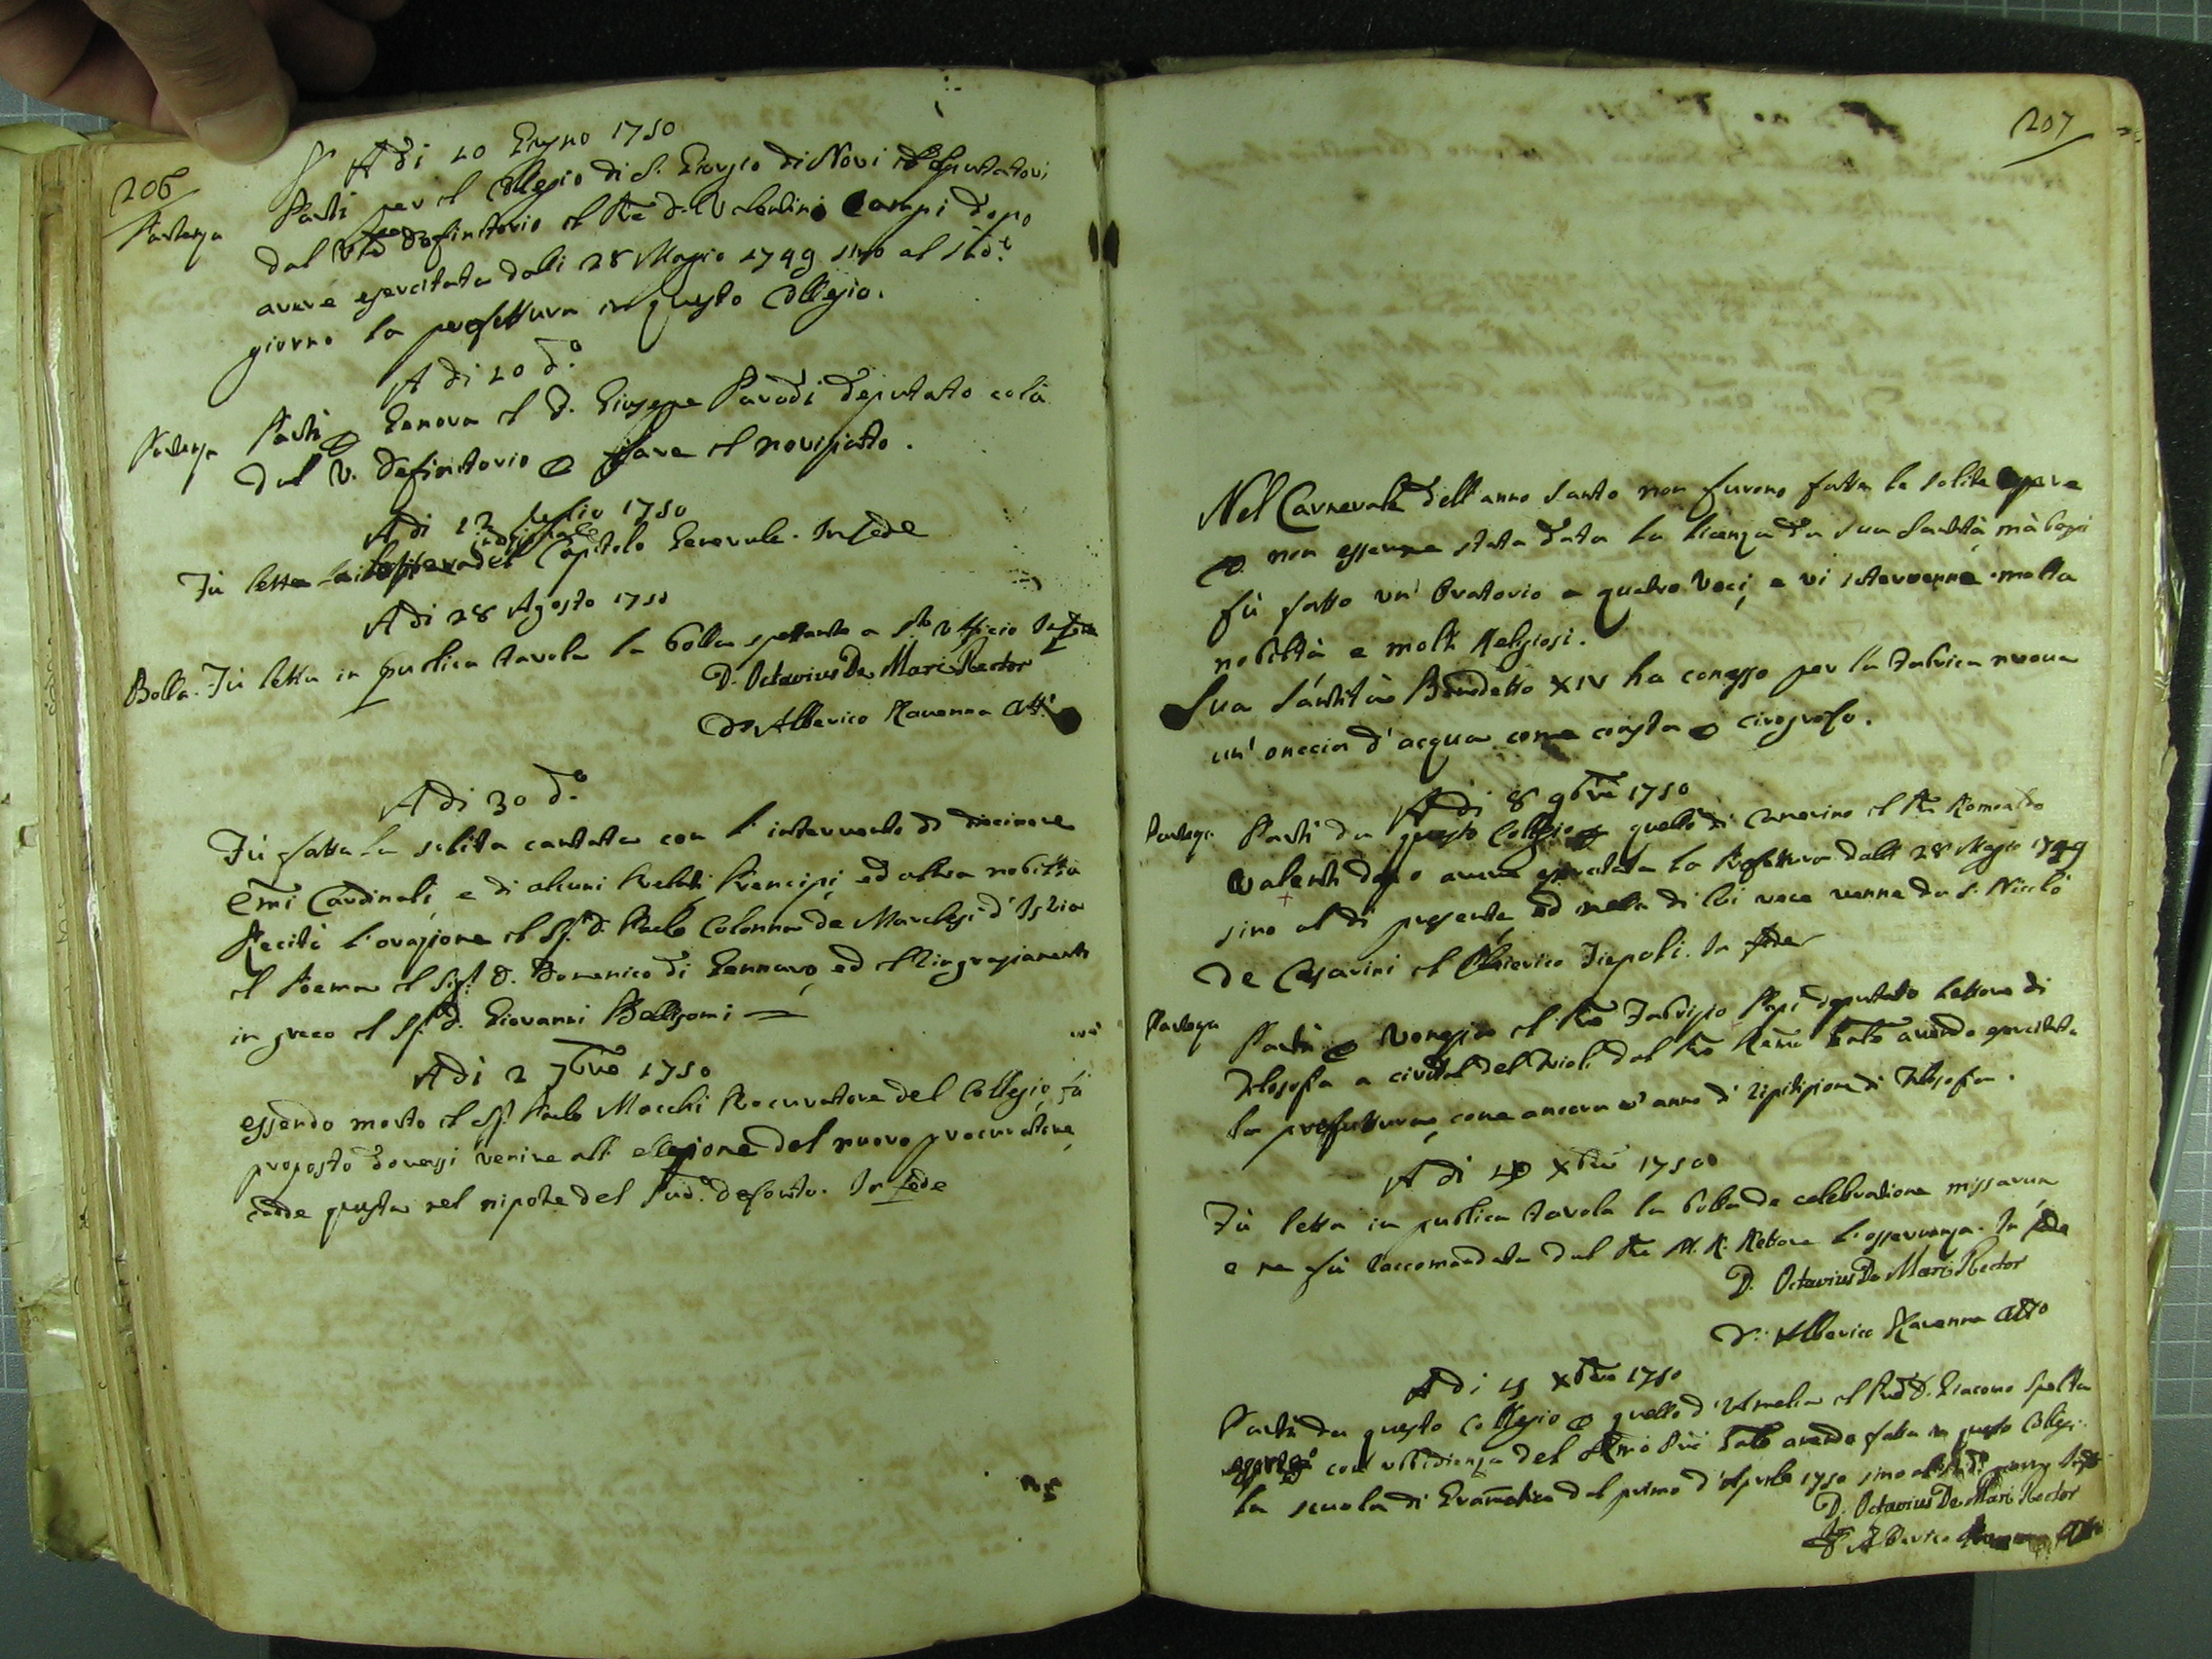 206
A di 10 Giugno 1750
Partenza Parti per il Collegio di S. Giorgio di Novi deputatovi
dal Vēn Definitorio il Rē d. Valentino Campi dopo
avere esercitata dalli 28 Magio 1749 sino al sūd.º
giorno la prefettura in questo Collegio.
A di 20 d.º
Partenza Parti Genova il d. Giuseppe Parodi deputato colà
dal V. Definitorio fare il noviziato.
A di 12 Luglio 1750
Fù letta del Capitolo Generale. In fede
A di 28 Agosto 1750
Bolla. Fù letta in publica tavola la bolla spettante a S.to Uffizio In fede
D. Octavius De Mari Rector
D. Alberico Ravenna Att.º
A di 30 d.º
Fù fatta la solita cantata con l'intervento di diecinove
Emi Cardinali, e di alcuni Prelati, Prencipi, ed altra nobiltà
Recitò l'orazione il Sig.r d. Paolo Colonna de Marchesi d'Istria
il Poema il Sig.r D. Domenico di Gennaro, ed il ringraziamento
in greco il Sig.r d. Giovanni Bellisomi
A di 2 7bre 1750
essendo morto il Sig.r Paolo Mocchi Procuratore del Collegio, fù
proposto doversi venire all'elezione del nuovo procuratore,
cadde questa nel nipote del sud.º defonto. In fede
207
Nel Carnevale dell'anno Santo non furono fatte le solite opere
non esserne stata data la licenza da sua Santità, mà bensì
fù fatto un' Oratorio a quatro Voci, e vi intervenne molta
nobiltà e molti Religiosi.
Sua Santità Benedetto XIV ha concesso per la fabrica nuova
un' oncia d'acqua come consta cirografo.
A di 8 9bre 1750
Partenza Parti da questo Collegio quello di Camerino il Rē Romualdo
Valenti dopo avere esercitata la Prefettura dalli 28 Magio 1749
sino al dì presente, ed nella di lui vece venne da S. Niccolò
De Cesarini il Chierico Tiepoli. In fede
Partenza Parti Venezia il Rē Fabrizio Papi deputato Lettore di
Filosofia a cividal del Frioli dal Rēmo Pr̄e Gnle avendo esercitata
la prefettura, come ancora un'anno di ripetizione di Filosofia.
A di Xbre 1750
Fù letta in publica tavola la bolla de celebratione missarum
e ne fù raccomandata dal Rē M. R. Rettore l'osservanza. In fede
D. Octavius De Mari Rector
D. Alberico Ravenna Atto
A di 15 Xbre 1750
Parti da questo Collegio quello d'Amelia il Pad. D. Giacomo Spelta
con ubbidienza del Rēmo Pr̄e Gnle avendo fatta in questo Collegio
la scuola di Gramatica dal primo d'Aprile 1750 sino al giorno
D. Octavius De Mari Rector
D. Alberico Ravenna Atto